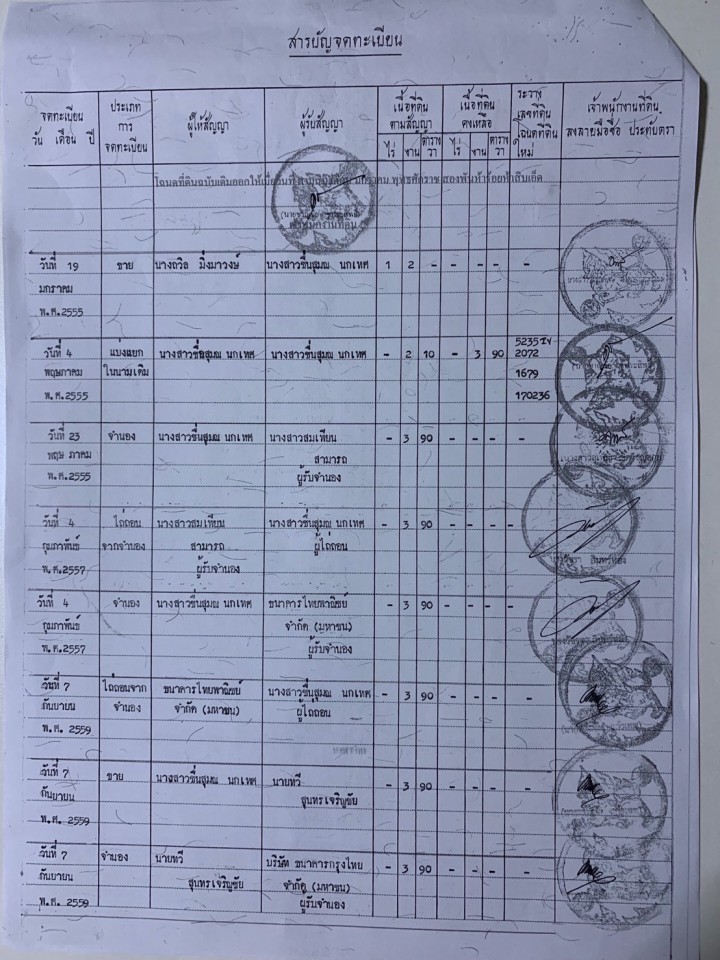 สารบัญจดทะเบียน
จดทะเบียน ประเภท ผู้ให้สัญญา ผู้รับสัญญา เนื้อที่ดิน เนื้อที่ดิน ระวาง เจ้าพนักงานที่ดิน
วัน เดือน ปี การ ตามสัญญา คงเหลือ เลขที่ดิน ลงลายมือชื่อ ประทับตรา
จดทะเบียน ไร่ งาน ตาราง ไร่ งาน ตาราง โฉนดที่ดิน
วา วา ใหม่
โฉนดที่ดินฉบับเดิมออกให้เมื่อวันที่ พุทธศักราช สองพันห้าร้อยห้าสิบเอ็ด
เจ้าพนักงานที่ดิน
วันที่ 19 ขาย นางถวิล มิ่งมาวงษ์ นางสาวชื่นสุมณ นกเทศ 1 2 - - - - -
มกราคม
พ.ศ.2555
วันที่ 4 แบ่งแยก นางสาวชื่นสุมณ นกเทศ นางสาวชื่นสุมณ นกเทศ - 2 10 - 3 90 5235 IV
พฤษภาคม ในนามเดิม 2072
1679
พ.ศ.2555 170236
วันที่ 23 จำนอง นางสาวชื่นสุมณ นกเทศ นางสาวสมเทียน - 3 90 - - - -
พฤษภาคม สามารถ
พ.ศ.2555 ผู้รับจำนอง
วันที่ 4 ไถ่ถอน นางสาวสมเทียน นางสาวชื่นสุมณ นกเทศ - 3 90 - - - -
กุมภาพันธ์ จากจำนอง สามารถ ผู้ไถ่ถอน
พ.ศ.2557 ผู้รับจำนอง
วันที่ 4 จำนอง นางสาวชื่นสุมณ นกเทศ ธนาคารไทยพาณิชย์ - 3 90 - - - -
กุมภาพันธ์ จำกัด (มหาชน)
พ.ศ.2557 ผู้รับจำนอง
วันที่ 7 ไถ่ถอนจาก ธนาคารไทยพาณิชย์ นางสาวชื่นสุมณ นกเทศ - 3 90 - - - -
กันยายน จำนอง จำกัด (มหาชน) ผู้ไถ่ถอน
พ.ศ. 2559
วันที่ 7 ขาย นางสาวชื่นสุมณ นกเทศ นายทวี - 3 90 - - - -
กันยายน สุนทรเจริญชัย
พ.ศ. 2559
วันที่ 7 จำนอง นายทวี บริษัท ธนาคารกรุงไทย - 3 90 - - - -
กันยายน สุนทรเจริญชัย จำกัด (มหาชน)
พ.ศ. 2559 ผู้รับจำนอง